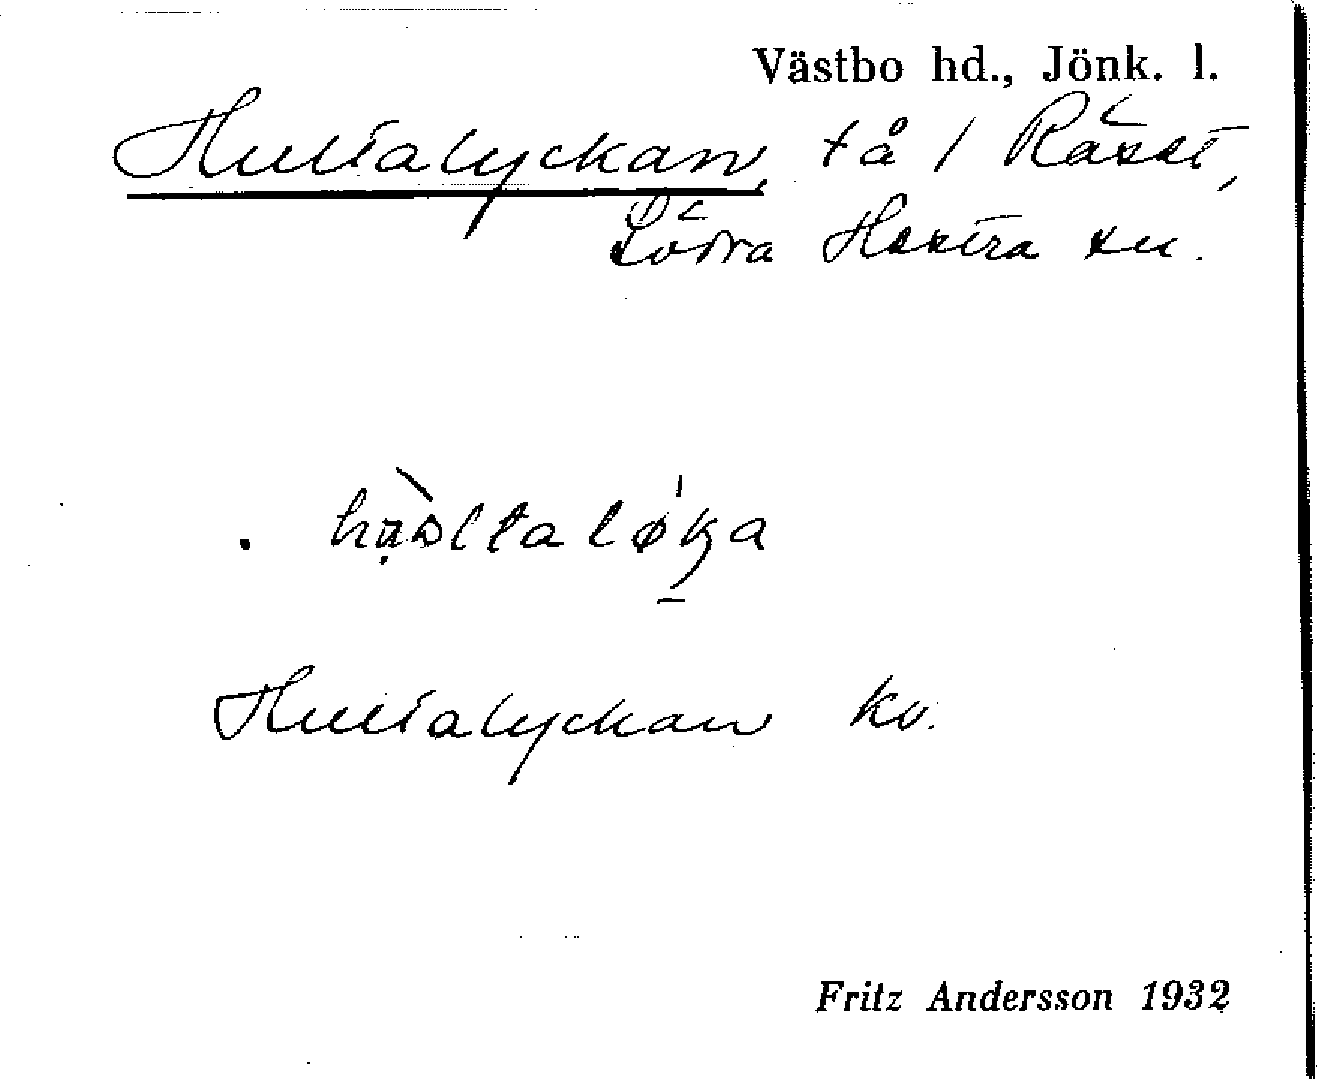 Västbo hd., Jönk. l.
Hultalyckan, tå / Rässt,
Södra Hestra sn.
Hultalyckan kv.
Fritz Andersson 1932